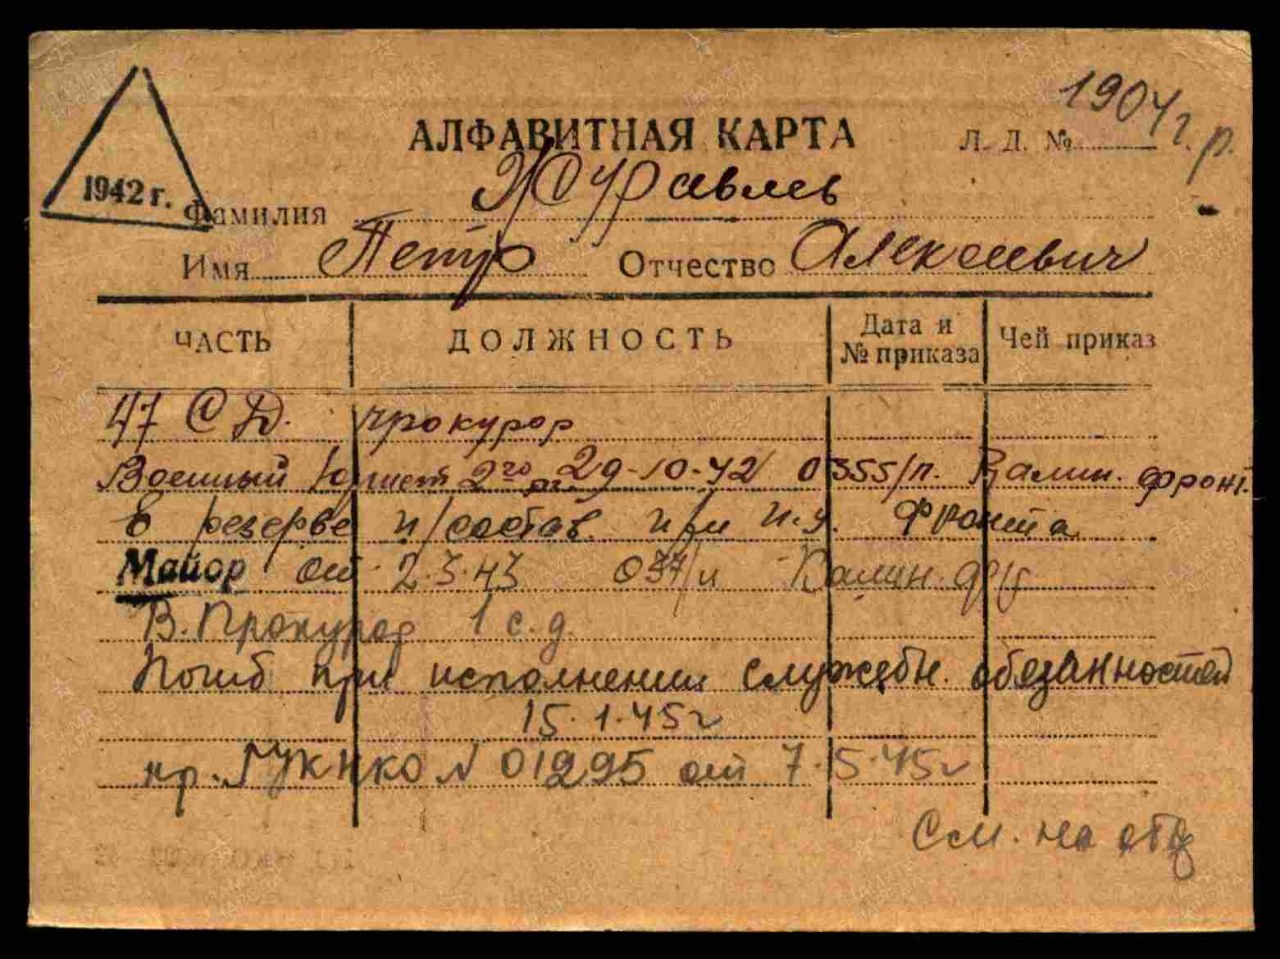 1904 г.р.
АЛФАВИТНАЯ КАРТА Л. Д. №
1942 г.
Фамилия Журавлев
Имя Петр Отчество Алексеевич
ЧАСТЬ ДОЛЖНОСТЬ Дата и № приказа Чей приказ
47 СД. прокурор
Военный Юрист 2го рг. 29-10-42 0355/п. Калин. фронт.
в резерве п/состав. при п.у. фронта
Майор от 2.3.43 037/п Калин. фр.
В. Прокурор 1 с.д.
Погиб при исполнении служебн. обязанностей
15.1.45 г
пр. ГУКНКО N 01295 от 7.5.45 г
См. на об.